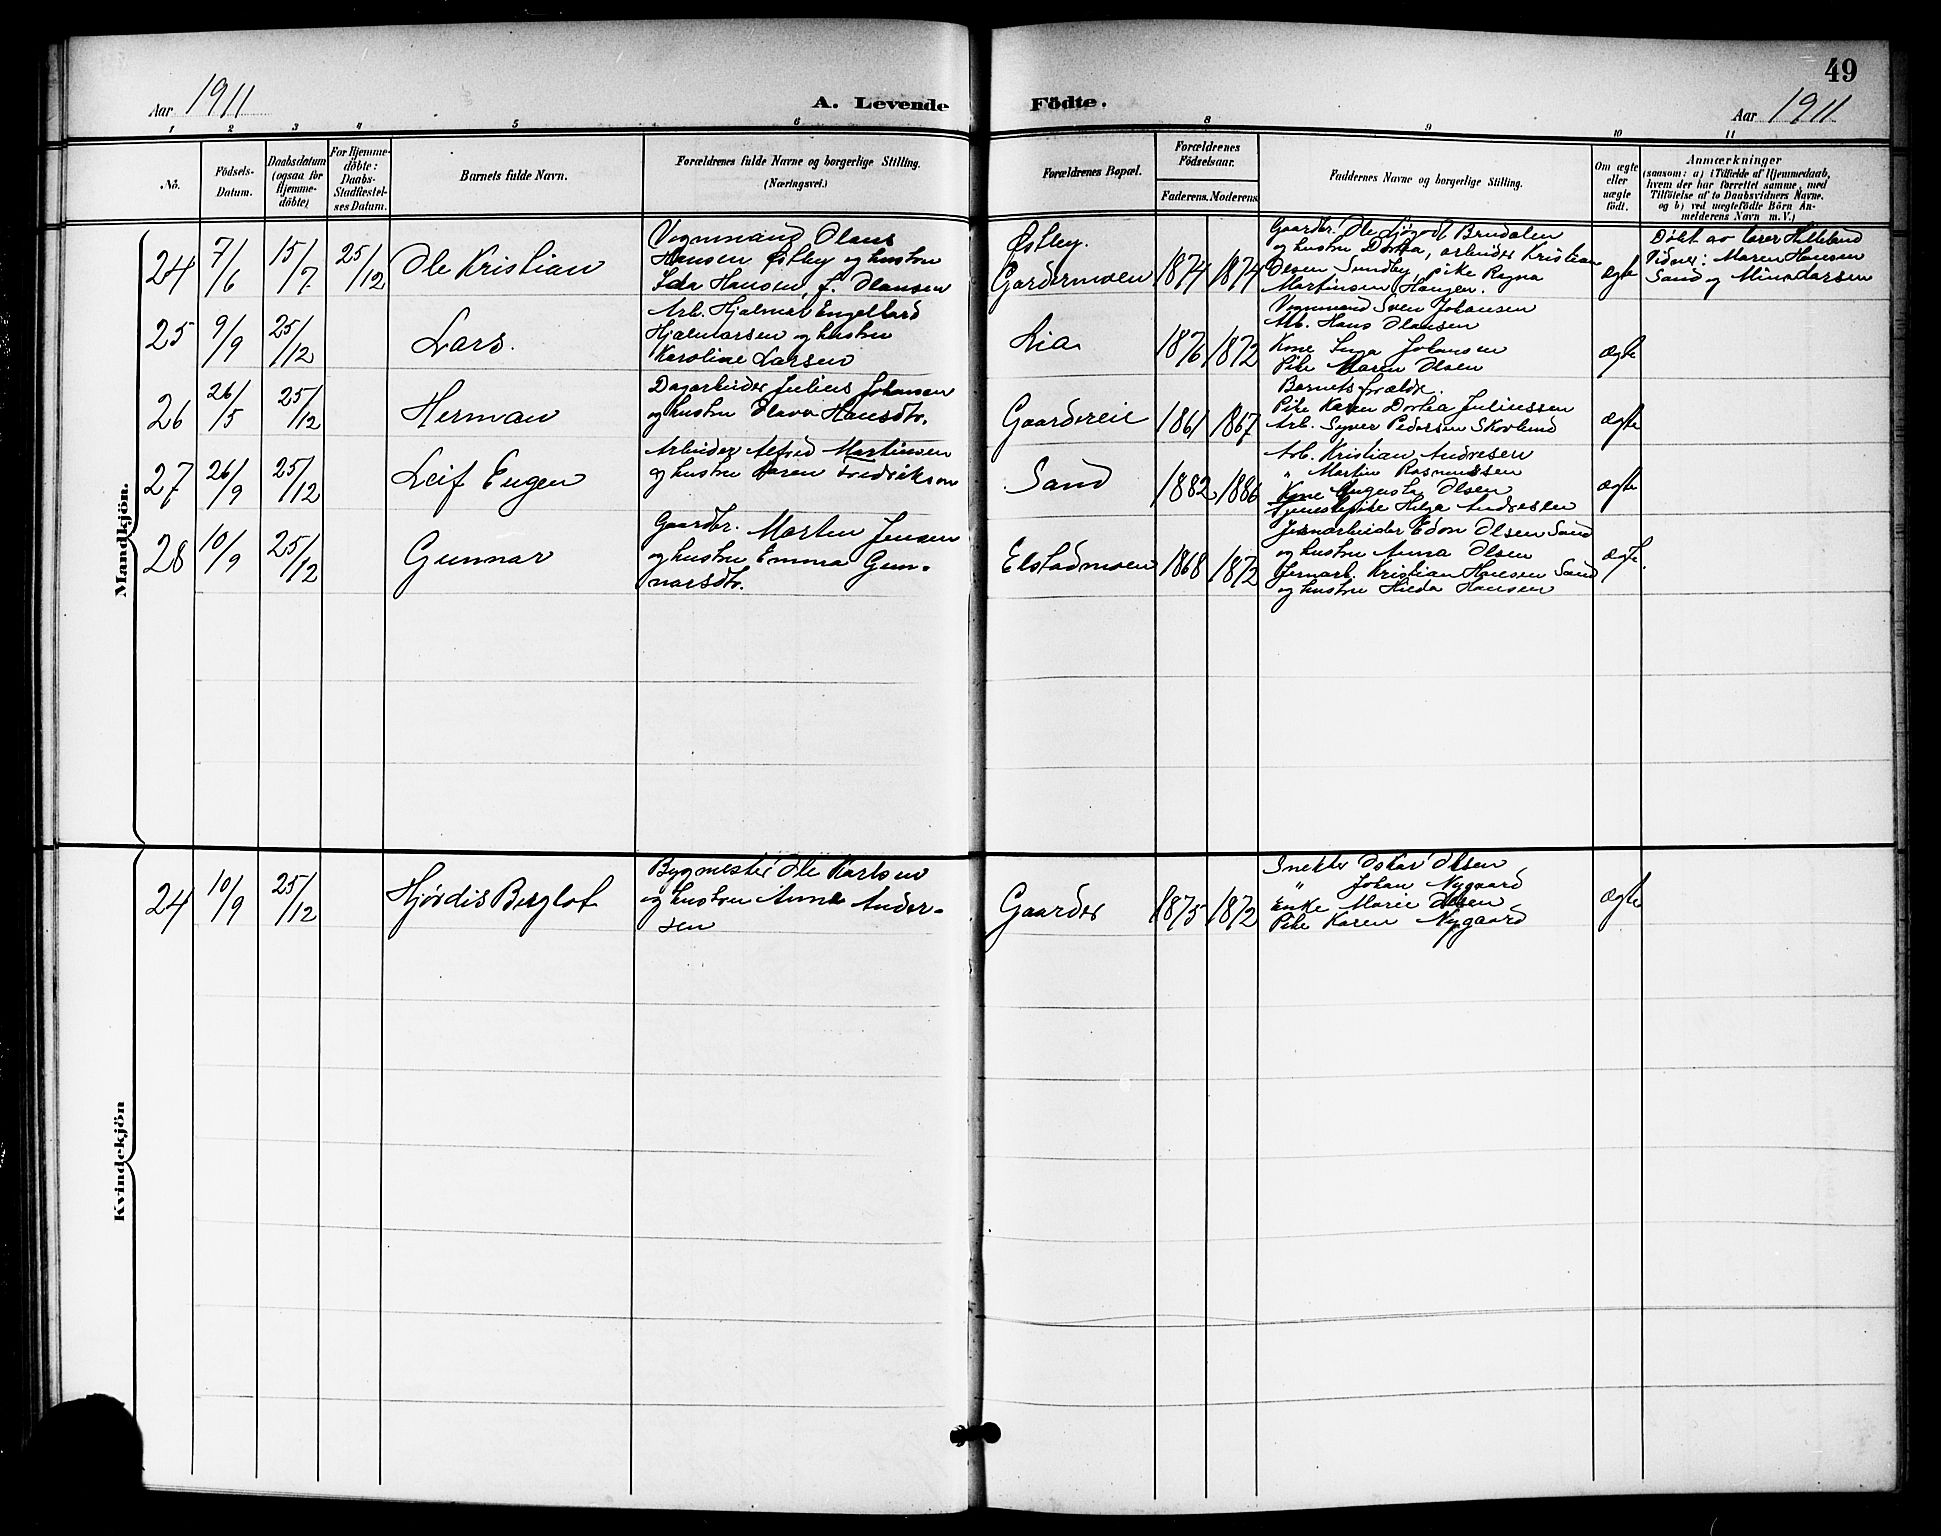 49
Aar 1911
A. Levende
Födte.
Aar 1911
1 2 3 4 5 6 8 9 10 11
Nö.
Födsels-
Datum.
Daabsdatum
(ogsaa for
Hjemme-
döbte)
For Hjemme-
döbte:
Daabs-
Stadfæstel-
ses Datum.
Barnets fulde Navn.
Forældrenes fulde Navne og borgerlige Stilling.
(Næringsvei.)
Forældrenes Bopæl.
Forældrenes
Födselsaar.
Faderens. Moderens.
Faddernes Navne og borgerlige Stilling.
Om ægte
eller
uægte
födt.
Anmærkninger
(saasom: a) i Tilfælde af Hjemmedaab,
hvem der har forrettet samme, med
Tilföielse af to Daabsvidners Navne.
og b) ved uægtefödte Börn An-
melderens Navn m. V.)
Mandkjön.
24 7/6 15/7 25/12 Ole Kristian
Vognmand Olaus
Hansen Østby og hustru
Ida Hansen f. Olausen
Østby.
Gardermoen 1874 1874
Gaardbr. Ole Sjøgodt Brudalen
og hustru Dorthea, arbeider Kristian
Olsen Sundby, pike Ragna
Martinsen Haugen.
ægte
Døbt av lærer Hilleland
Vidner: Maren Hansen
Sand og Mina Larsen
25 9/9 25/12 Lars.
Arb. Hjalmar Engelhard
Hjalmarsen og hustru
Karoline Larsen
Lia 1876 1872
Vognmand Sven Johansen
Arb. Hans Olausen
Kone Inga Johansen
Pike Maren Olsen
ægte
26 26/5 25/12 Herman
Dagarbeider Julius Johansen
og hustru Olava Hansdtr.
Gaardereie 1861 1867
Barnets forældre
Pike Karen Dorthea Juliussen
Arb. Syver Pedersen Skovlund
ægte
27 26/9 25/12 Leif Eugen
Arbeider Alfred Martinsen
og hustru Karen Fredriksen
Sand 1882 1886
Arb. Kristian Andresen
" Martin Rasmussen
Kone Augusta Olsen
Tjenestepike Helga Andresen
ægte
28 10/9 25/12 Gunnar
Gaardbr. Martin Jensen
og hustru Emma Gun-
narsdtr.
Elstadmoen 1868 1872
Jernarbeider Edon Olsen Sand
og hustru Anna Olsen
Jernarb. Kristian Hansen Sand
og hustru Hilda Hansen
ægte.
Kvindekjön
24 10/9 25/12 Hjørdis Berglot
Bygmester Ole Karlsen
og hustru Anna Ander-
sen
Gaarder 1875 1872
Snekker Oskar Olsen
" Johan Nygaard
Enke Marie Olsen
Pike Karen Nygaard
ægte